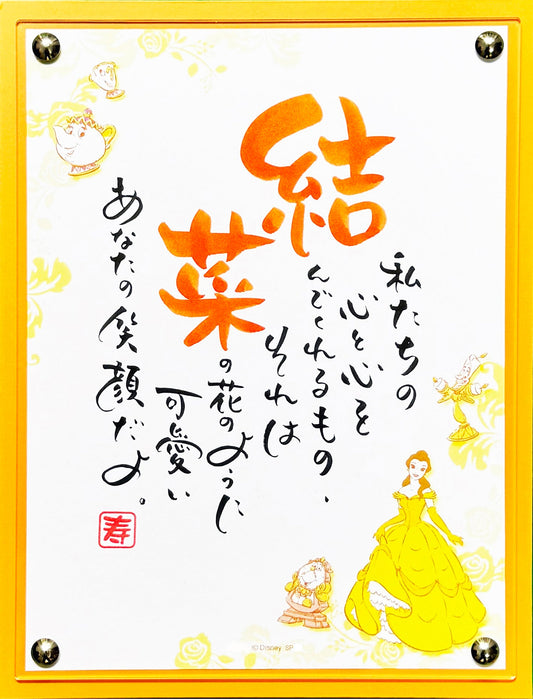 私たちの
心と心を
結
んでくれるもの、
それは
菜
の花のように
可愛い
あなたの笑顔だよ。
寿
© Disney SP